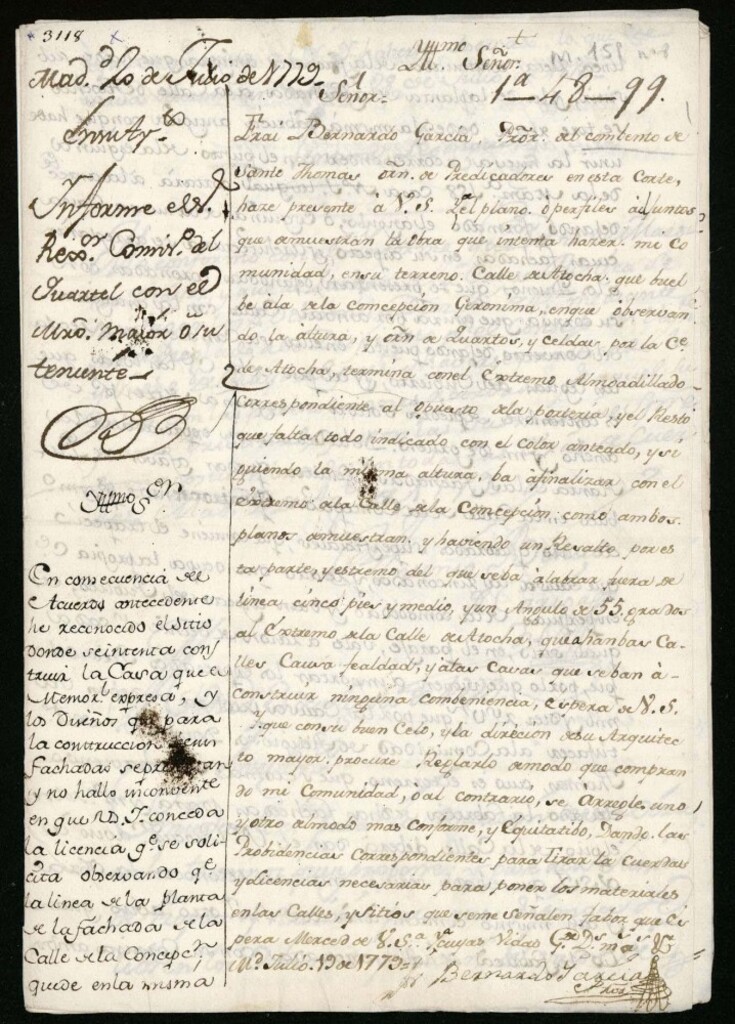 3118
Mad.d 20 de Julio de 1779
Informe el S.r
Rex.or Comis.o del
Quartel con el
Mro. maior o su
teniente
Yllmo S.or
En consecuencia del
Acuerdo antecedente
he reconocido el sitio
donde se intenta cons
truir la Casa que el
Memor.l expresa, y
los Diseños que para
la construccion de sus
fachadas se presentan
y no hallo inconveniente
en que V.S.I. conceda
la licencia q.e se soli-
cita observando q.e
la linea de la planta
de la fachada de la
Calle de la Concepc.n
quede en la misma
Yllmo Señor
Señor
1a-48-99.
Frai Bernardo Garcia, Pror. del combento de
Santo Thomas orn. de Predicadores en esta Corte,
haze presente à V.S.Y. el plano, o perfiles adjuntos
que demuestran la obra que intenta hazer mi Co
munidad, en su terreno Calle de Atocha que buel
be à la de la Concepción Geronima, en que observan
do la altura, y orn de Quartos, y Celdas por la C.e
de Atocha, termina con el Extremo Almoadillado
correspondiente al obuesto de la porteria, y el Resto
que falta todo indicado con el color anteado, y si
guiendo la misma altura, ba a finalizar con el
Extremo de la Calle de la Concepción como ambos
planos demuestran y haviendo un Resalto por es
ta parte, y estremo del que se ba à labrar fuera de
linea cinco pies y medio, y un Angulo de 55 grados
al Extremo de la Calle de Atocha, que a hambas Ca-
lles Causa fealdad, y a las Casas que se ban à
construir ninguna combeniencia, espera de V.S.
Y. que con su buen Celo, y la direcion de su Arquitec
to mayor, procure Reglarlo de modo que compran
do mi Comunidad, ò al contrario, se Arregle uno
y otro al modo mas Conforme, y Equitatibo, Dando las
Probidencias correspondientes para tirar la Cuerda
y licencias necesarias para poner los materiales
en las Calles, y sitios que se me señalen fabor que es
pera Merced de V.S.a Y.a cuyas Vidas G.e D.s m.s a.s
M.d Julio 19 de 1779
Bernardo Garcia
Pror.